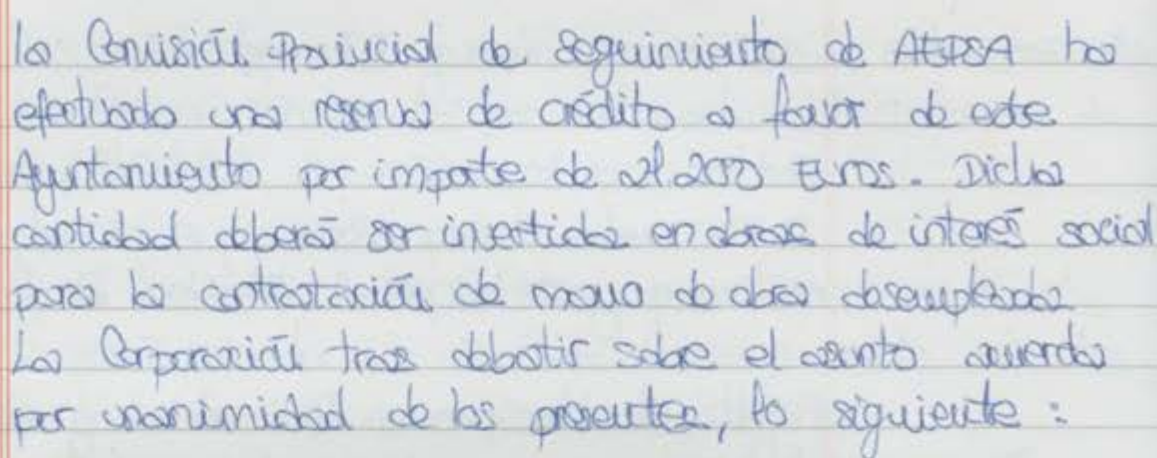 la Comisión Provincial de seguimiento de AEPSA ha
efectuado una reserva de crédito a favor de este
Ayuntamiento por importe de 21.200 Euros. Dicha
cantidad deberá ser invertida en obras de interés social
para la contratación de mano de obra desempleada
La Corporación tras debatir sobre el asunto acuerda
por unanimidad de los presentes, lo siguiente: